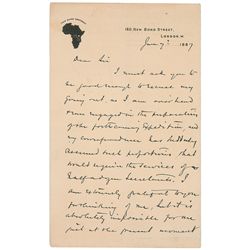 160 New Bond Street,
London. W.
Jan 7th 1887
Dear Sir
I must ask you to
be good enough to excuse my
going out, as I am over head
ears engaged in the preparations
of the forthcoming Expedition, and
my correspondence has suddenly
assumed such proportions that
would require the services of a
half a dozen Secretaries. I
am extremely obliged to you
for thinking of me, but it is
absolutely impossible for me
just at the present moment